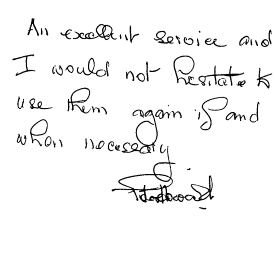 An excellent service and
I would not hesitate to
use them again if and
when necessary